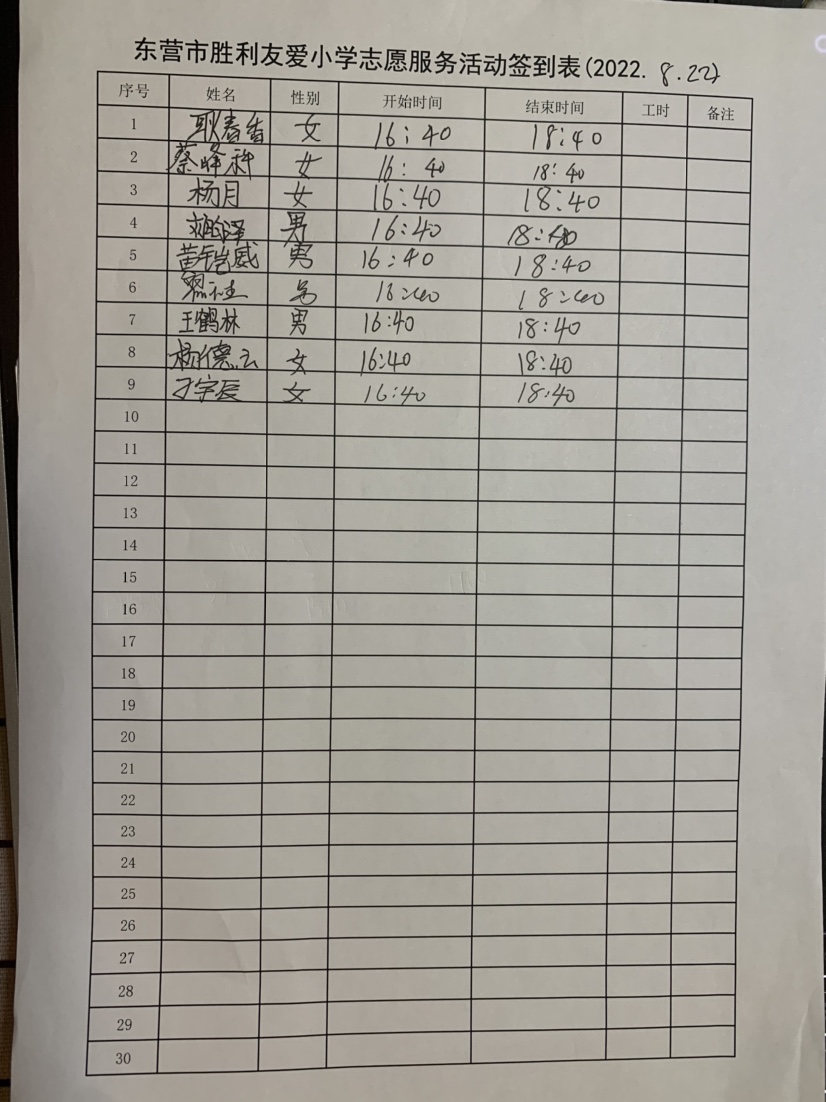 东营市胜利友爱小学志愿服务活动签到表(2022. 8.22)
序号 姓名 性别 开始时间 结束时间 工时 备注
1 耿春香 女 16:40 18:40
2 蔡峰 女 16:40 18:40
3 杨月 女 16:40 18:40
4 男 16:40 18:40
5 苗铠威 男 16:40 18:40
6 16:40 18:40
7 王鹤林 男 16:40 18:40
8 杨德云 女 16:40 18:40
9 才宇辰 女 16:40 18:40
10
11
12
13
14
15
16
17
18
19
20
21
22
23
24
25
26
27
28
29
30